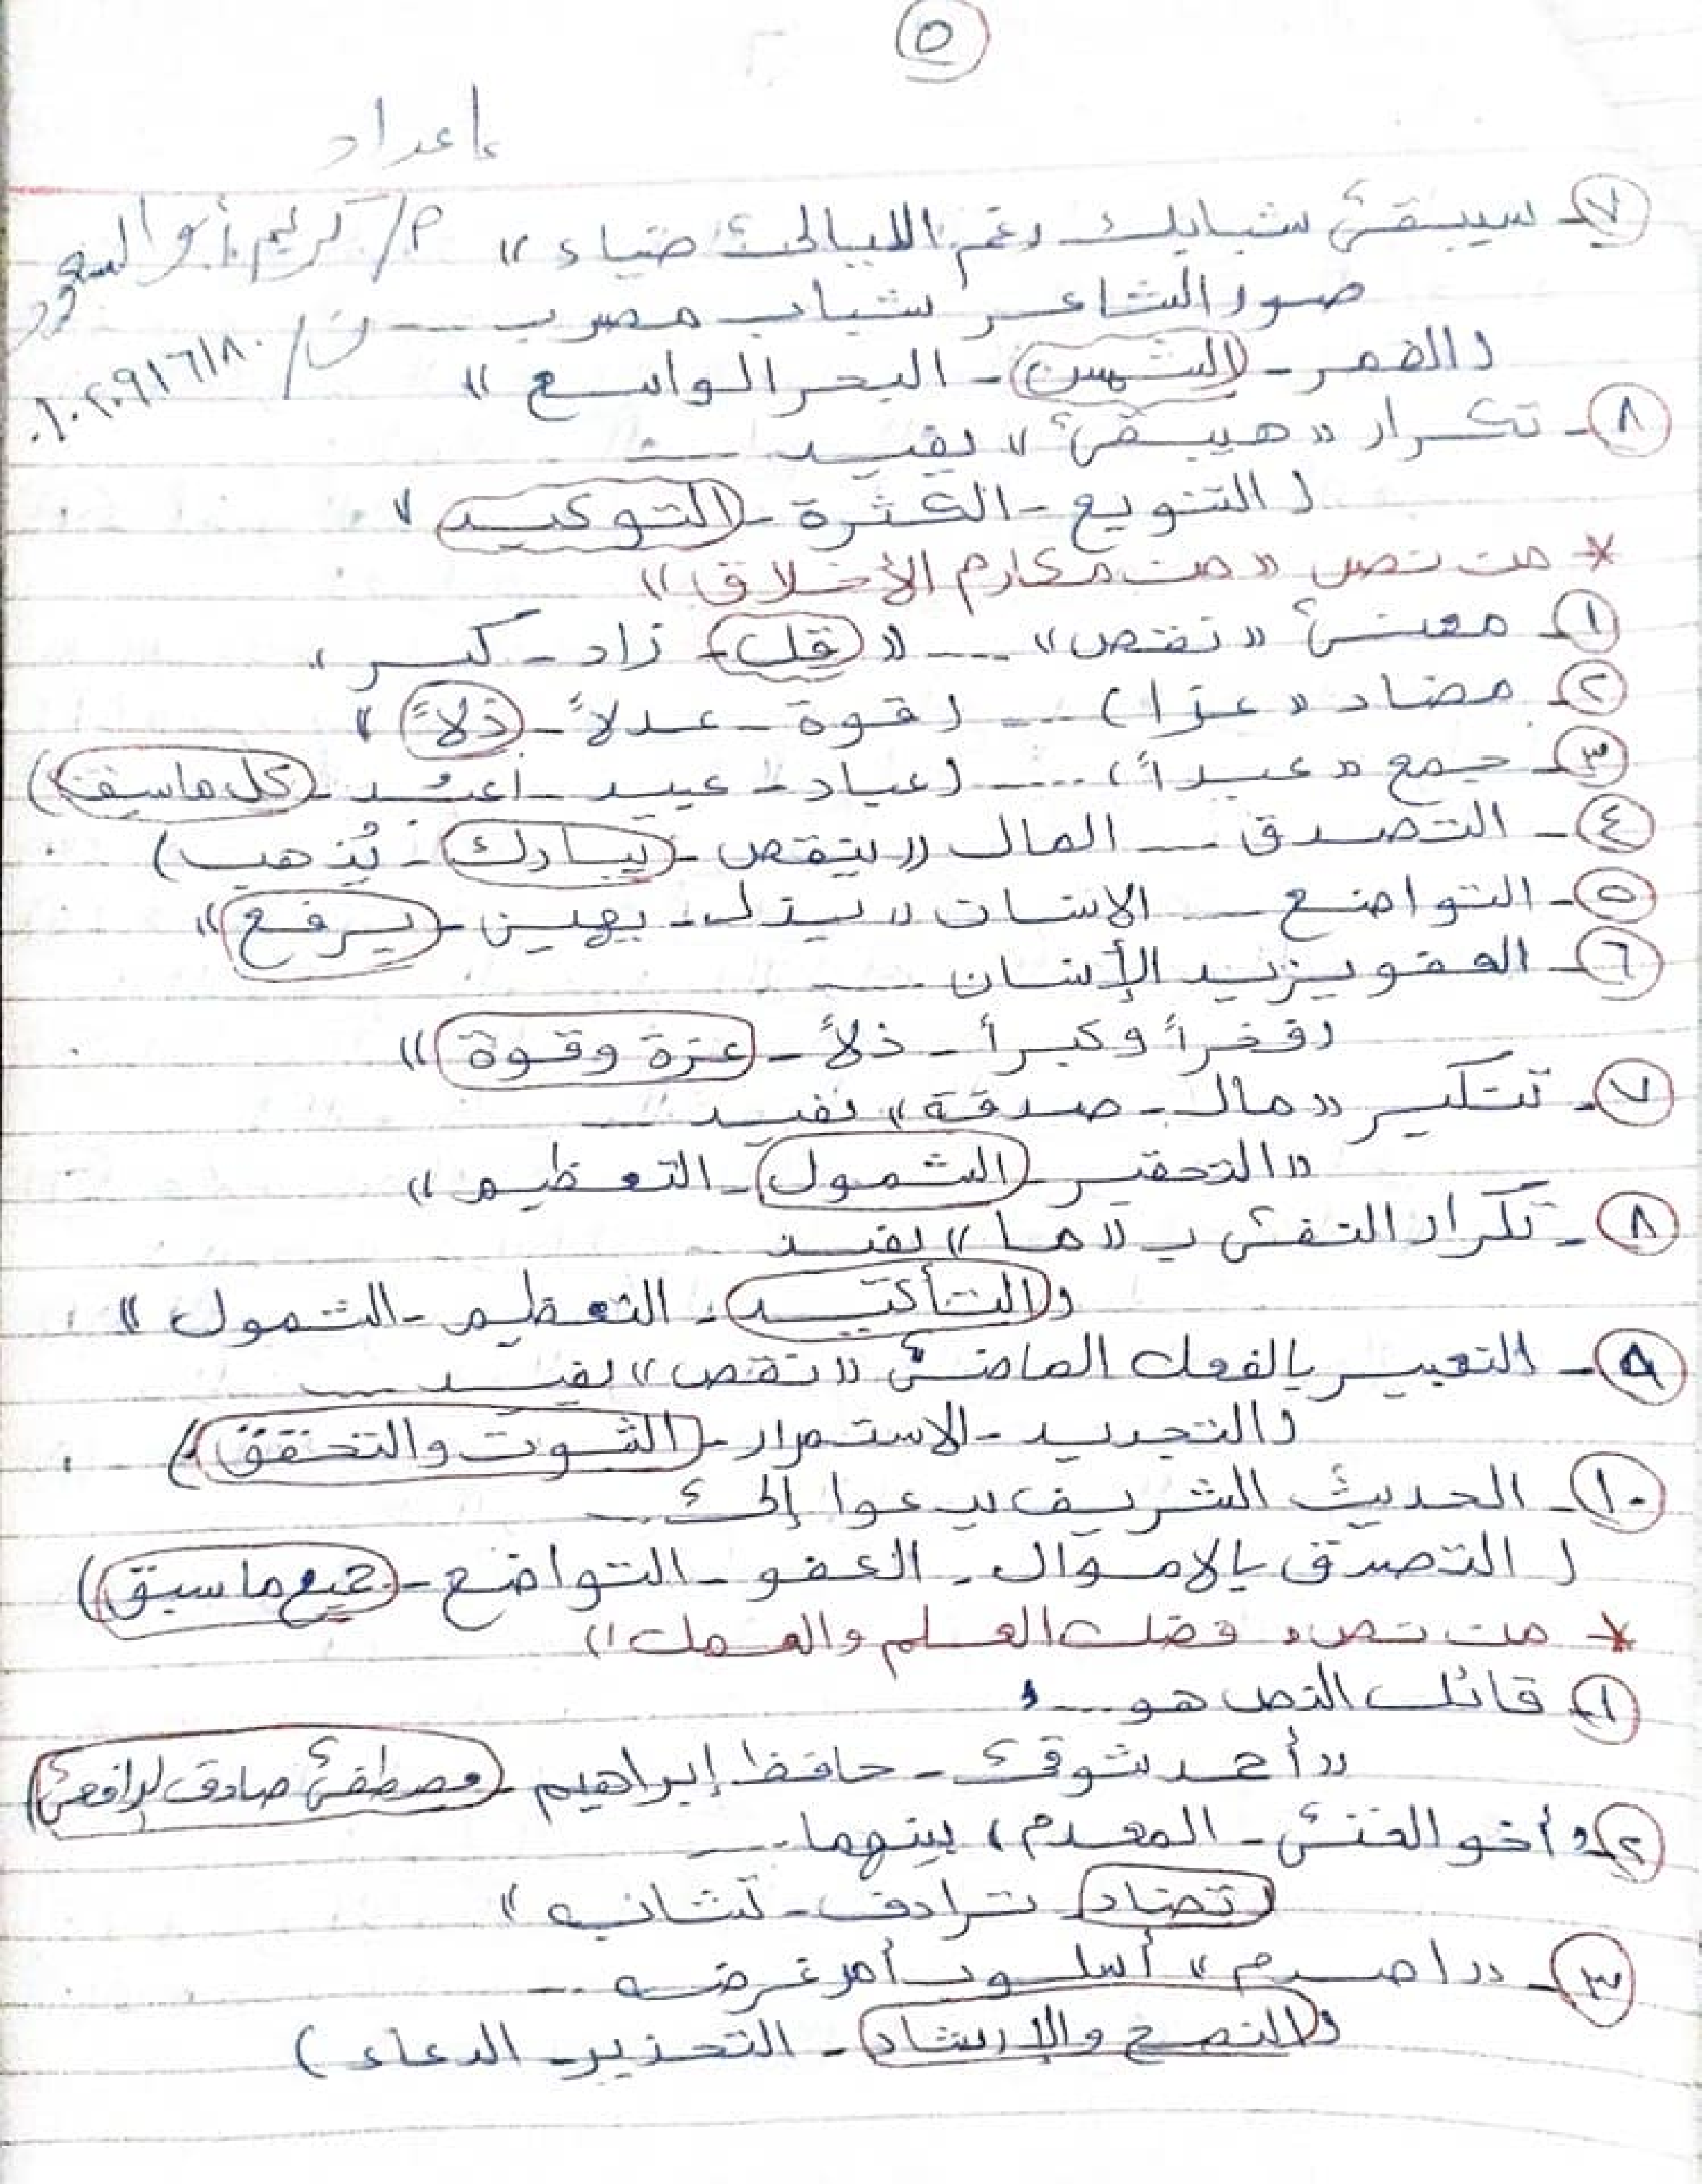 ٥
إعداد
م/ كريم أبو السعود
ت/ ٠١٠٢٠٩١٦١٨٠
٧- سيبقى شبابك رغم الليالى ضياء »
صور الشاعر شباب مصر ب ....
( القمر - الشمس - البحر الواسع »
٨- تكرار « هيبقى » يفيد ....
( التنويع - الكثرة - التوكيد )
* من نص « من مكارم الأخلاق »
١- معنى « نقص » .... « قل - زاد - كبر »
٢- مضاد « عزا ) .... ( قوة - عدلاً - ذلاً )
٣- جمع « عبداً ) .... ( عباد - عبيد - أعبُد - كل ما سبق )
٤- التصدق .... المال « ينقص - يبارك - يُذهب )
٥- التواضع .... الانسان « يذل - يهين - يرفع »
٦- العفو يزيد الإنسان ....
( فخراً وكبراً - ذلاً - عزة وقوة »
٧- تنكير « مال - صدقة » يفيد ....
« التحقير - الشمول - التعظيم »
٨- تكرار النفى ب « ما » يفيد
( التأكيد - التعظيم - الشمول »
٩- التعبير بالفعل الماضى « نقص » يفيد ....
( التجديد - الاستمرار - الثبوت والتحقق )
١٠- الحديث الشريف يدعوا إلى ....
( التصدق بالاموال - العفو - التواضع - جميع ما سبق )
* من نص « فضل العلم والعمل »
١- قائل النص هو ....
« أحمد شوقى - حافظ إبراهيم - مصطفى صادق الرافعى )
٢- « أخو الغنى - المعدم » بينهما ....
( تضاد - ترادف - تشابه »
٣- « اصرم » أسلوب أمر غرضه ....
( النصح والإرشاد - التحذير - الدعاء )